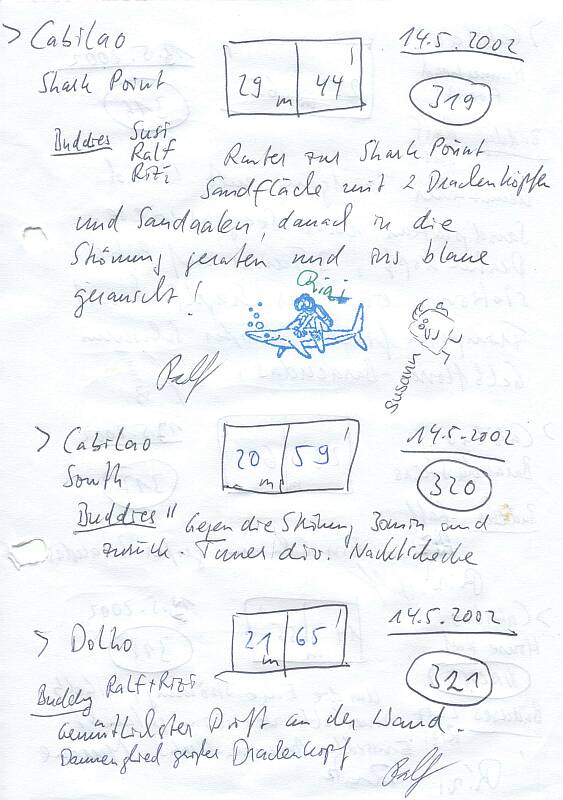 > Cabilao
14.5.2002
Shark Point
29 m 44'
319
Buddies Susi
Ralf
Rizi
Runter zur Shark Point
Sandfläche mit 2 Drachenköpfen
und Sandaalen, danach in die
Strömung geraten und ins blaue
gerauscht!
Rizi
Ralf
Susann
> Cabilao
14.5.2002
South
20 m 59'
320
Buddies " Gegen die Strömung 30min und
zurück. Tunes div. Nacktschecke
> Dolho
14.5.2002
21 m 65'
321
Buddy Ralf + Rizi
Gemütlichster Drift an der Wand.
Daumenglied großer Drachenkopf
Ralf